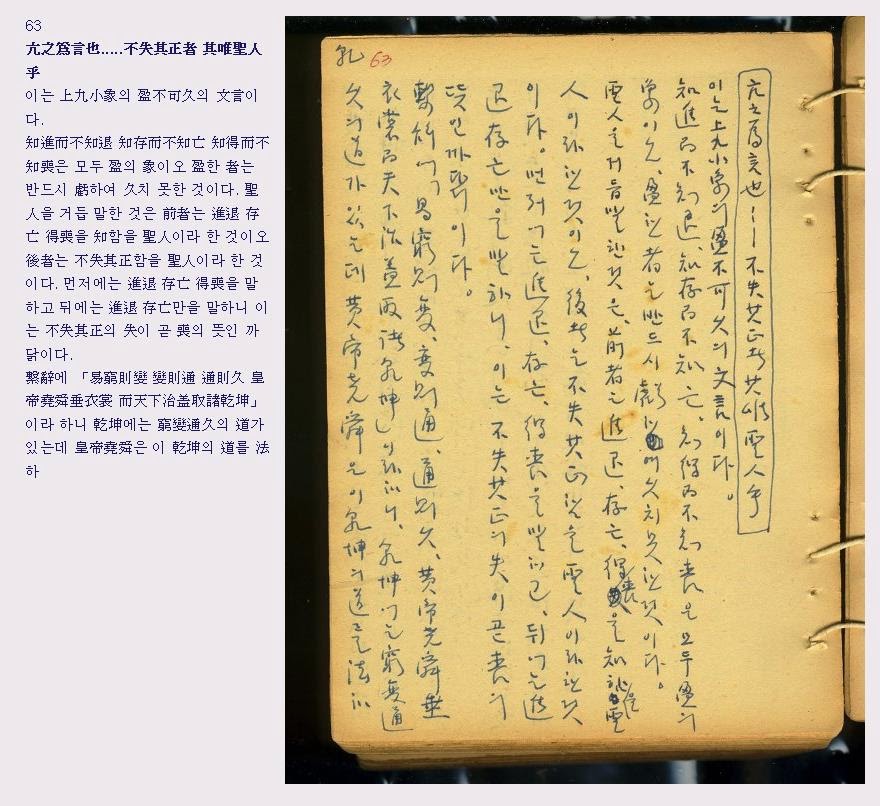 63
亢之爲言也.....不失其正者 其唯聖人
乎
이는 上九小象의 盈不可久의 文言이
다.
知進而不知退 知存而不知亡 知得而不
知喪은 모두 盈의 象이오 盈한 者는
반드시 虧하여 久치 못한 것이다. 聖
人을 거듭 말한 것은 前者는 進退 存
亡 得喪을 知함을 聖人이라 한 것이오
後者는 不失其正함을 聖人이라 한 것
이다. 먼저에는 進退 存亡 得喪을 말
하고 뒤에는 進退 存亡만을 말하니 이
는 不失其正의 失이 곧 喪의 뜻인 까
닭이다.
繫辭에 「易窮則變 變則通 通則久 皇
帝堯舜垂衣裳 而天下治盖取諸乾坤」
이라 하니 乾坤에는 窮變通久의 道가
있는데 皇帝堯舜은 이 乾坤의 道를 法
하
乾 63
亢之爲言也……不失其正者其唯聖人乎
이는 上九小象의 盈不可久의 文言이다。
知進而不知退、知存而不知亡、知得而不知喪은 모두 盈의
象이오、盈한 者는 반드시 虧하여 久치 못한 것이다。
聖人을 거듭 말한 것은、前者는 進退、存亡、得喪을 知함을 聖
人이라 한 것이오、後者는 不失其正함을 聖人이라 한 것
이다。먼저에는 進退、存亡、得喪을 말하고、뒤에는 進
退存亡만을 말하니、이는 不失其正의 失이 곧 喪의
뜻인 까닭이다。
繫辭에「易窮則變、變則通、通則久、黃帝堯舜垂
衣裳而天下治盖取諸乾坤」이라 하니、乾坤에는 窮變通
久의 道가 있는데 黃帝堯舜은 이 乾坤의 道를 法하